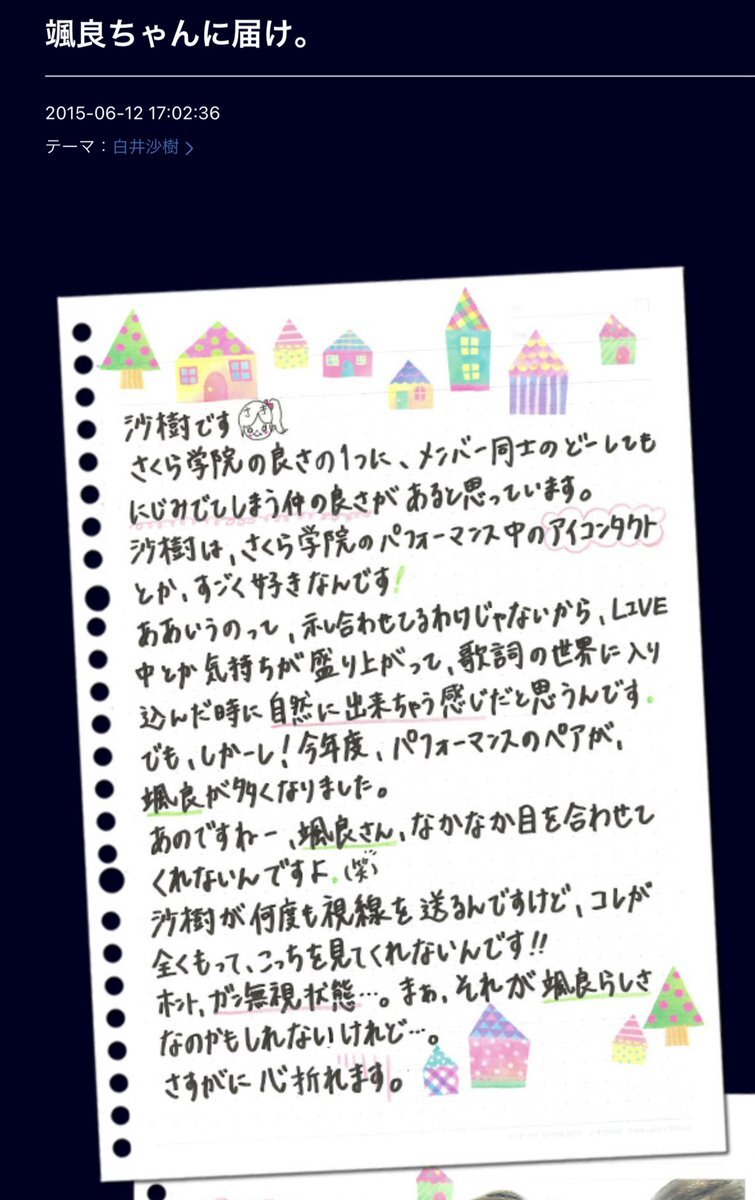 颯良ちゃんに届け。
2015-06-12 17:02:36
テーマ：白井沙樹
沙樹です
さき
さくら学院の良さの1つに、メンバー同士のどーしても
にじみでてしまう仲の良さがあると思っています。
沙樹は、さくら学院のパフォーマンス中のアイコンタクト
とか、すごく好きなんです!
ああいうのって、示し合わせてるわけじゃないから、LIVE
中とか気持ちが盛り上がって、歌詞の世界に入り
込んだ時に自然に出来ちゃう感じだと思うんです。
でも、しかーし!今年度、パフォーマンスのペアが、
颯良が多くなりました。
あのですねー、颯良さん、なかなか目を合わせて
くれないんですよ.(笑)
沙樹が何度も視線を送るんですけど、コレが
全くもって、こっちを見てくれないんです!!
ホント、ガン無視状態…。まぁ、それが颯良らしさ
なのかもしれないけれど…。
さすがに心折れます。